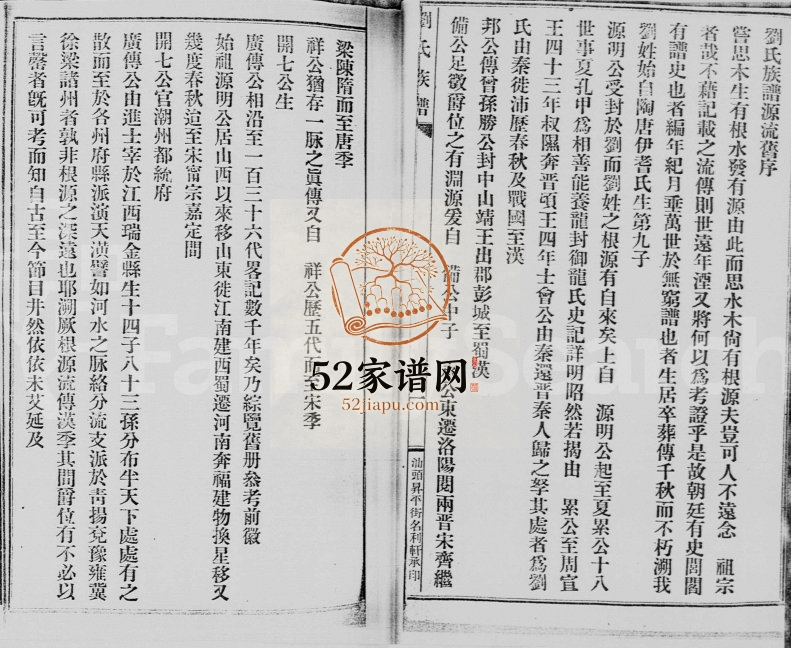 劉氏族譜源流舊序
嘗思木生有根水發有源由此而思水木尙有根源夫豈可人不遠念　祖宗
者哉不藉記載之流傳則世遠年湮又將何以爲考證乎是故朝廷有史閭閻
有譜史也者編年紀月垂萬世於無窮譜也者生居卒葬傳千秋而不朽溯我
劉姓始自陶唐伊耆氏生第九子
源明公受封於劉而劉姓之根源有自來矣上自　源明公起至夏累公十八
世事夏孔甲爲相善能養龍封御龍氏史記詳明昭然若揭由　累公至周宣
王四十三年叔隰奔晋頃王四年士會公由秦還晋秦人歸之孥其處者爲劉
氏由秦徙沛歷春秋及戰國至漢
邦公傳曾孫勝公封中山靖王出郡彭城至蜀漢
備公足徵爵位之有淵源爰自　備公中子　公東遷洛陽閱兩晋宋齊繼
劉氏族譜
一
汕頭昇平街名利軒承印
梁陳隋而至唐季
祥公猶存一脉之眞傳又自　祥公歷五代而至宋季
開七公生
廣傳公相沿至一百三十六代畧記數千年矣乃綜覽舊册叅考前徽
始祖源明公居山西以來移山東徙江南建西蜀遷河南奔福建物換星移又
幾度春秋迨至宋甯宗嘉定間
開七公官潮州都統府
廣傳公由進士宰於江西瑞金縣生十四子八十三孫分布半天下處處有之
散而至於各州府縣派演天潢譬如河水之脉絡分流支派於靑揚兗豫雍冀
徐梁諸州者孰非根源之深遠也耶溯厥根源流傳漢季其間爵位有不必以
言罄者旣可考而知自古至今節目井然依依未艾延及
52家谱网
52jiapu.com